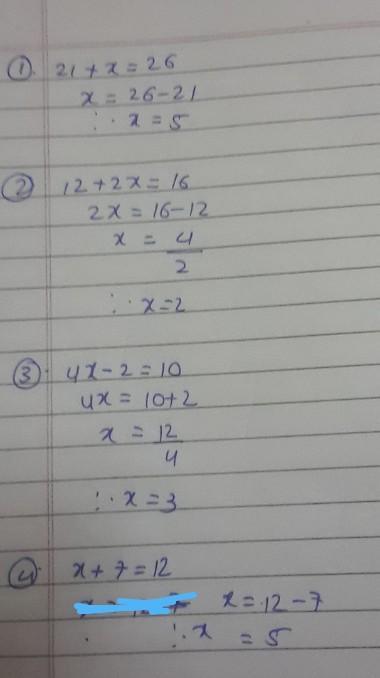 ① 21 + x = 26
x = 26-21
∴ x = 5
② 12+2x = 16
2x = 16-12
x = 4/2
∴ x=2
③ 4x-2 = 10
4x = 10+2
x = 12/4
∴ x = 3
④ x + 7 = 12
x = 12 - 7
∴ x = 5